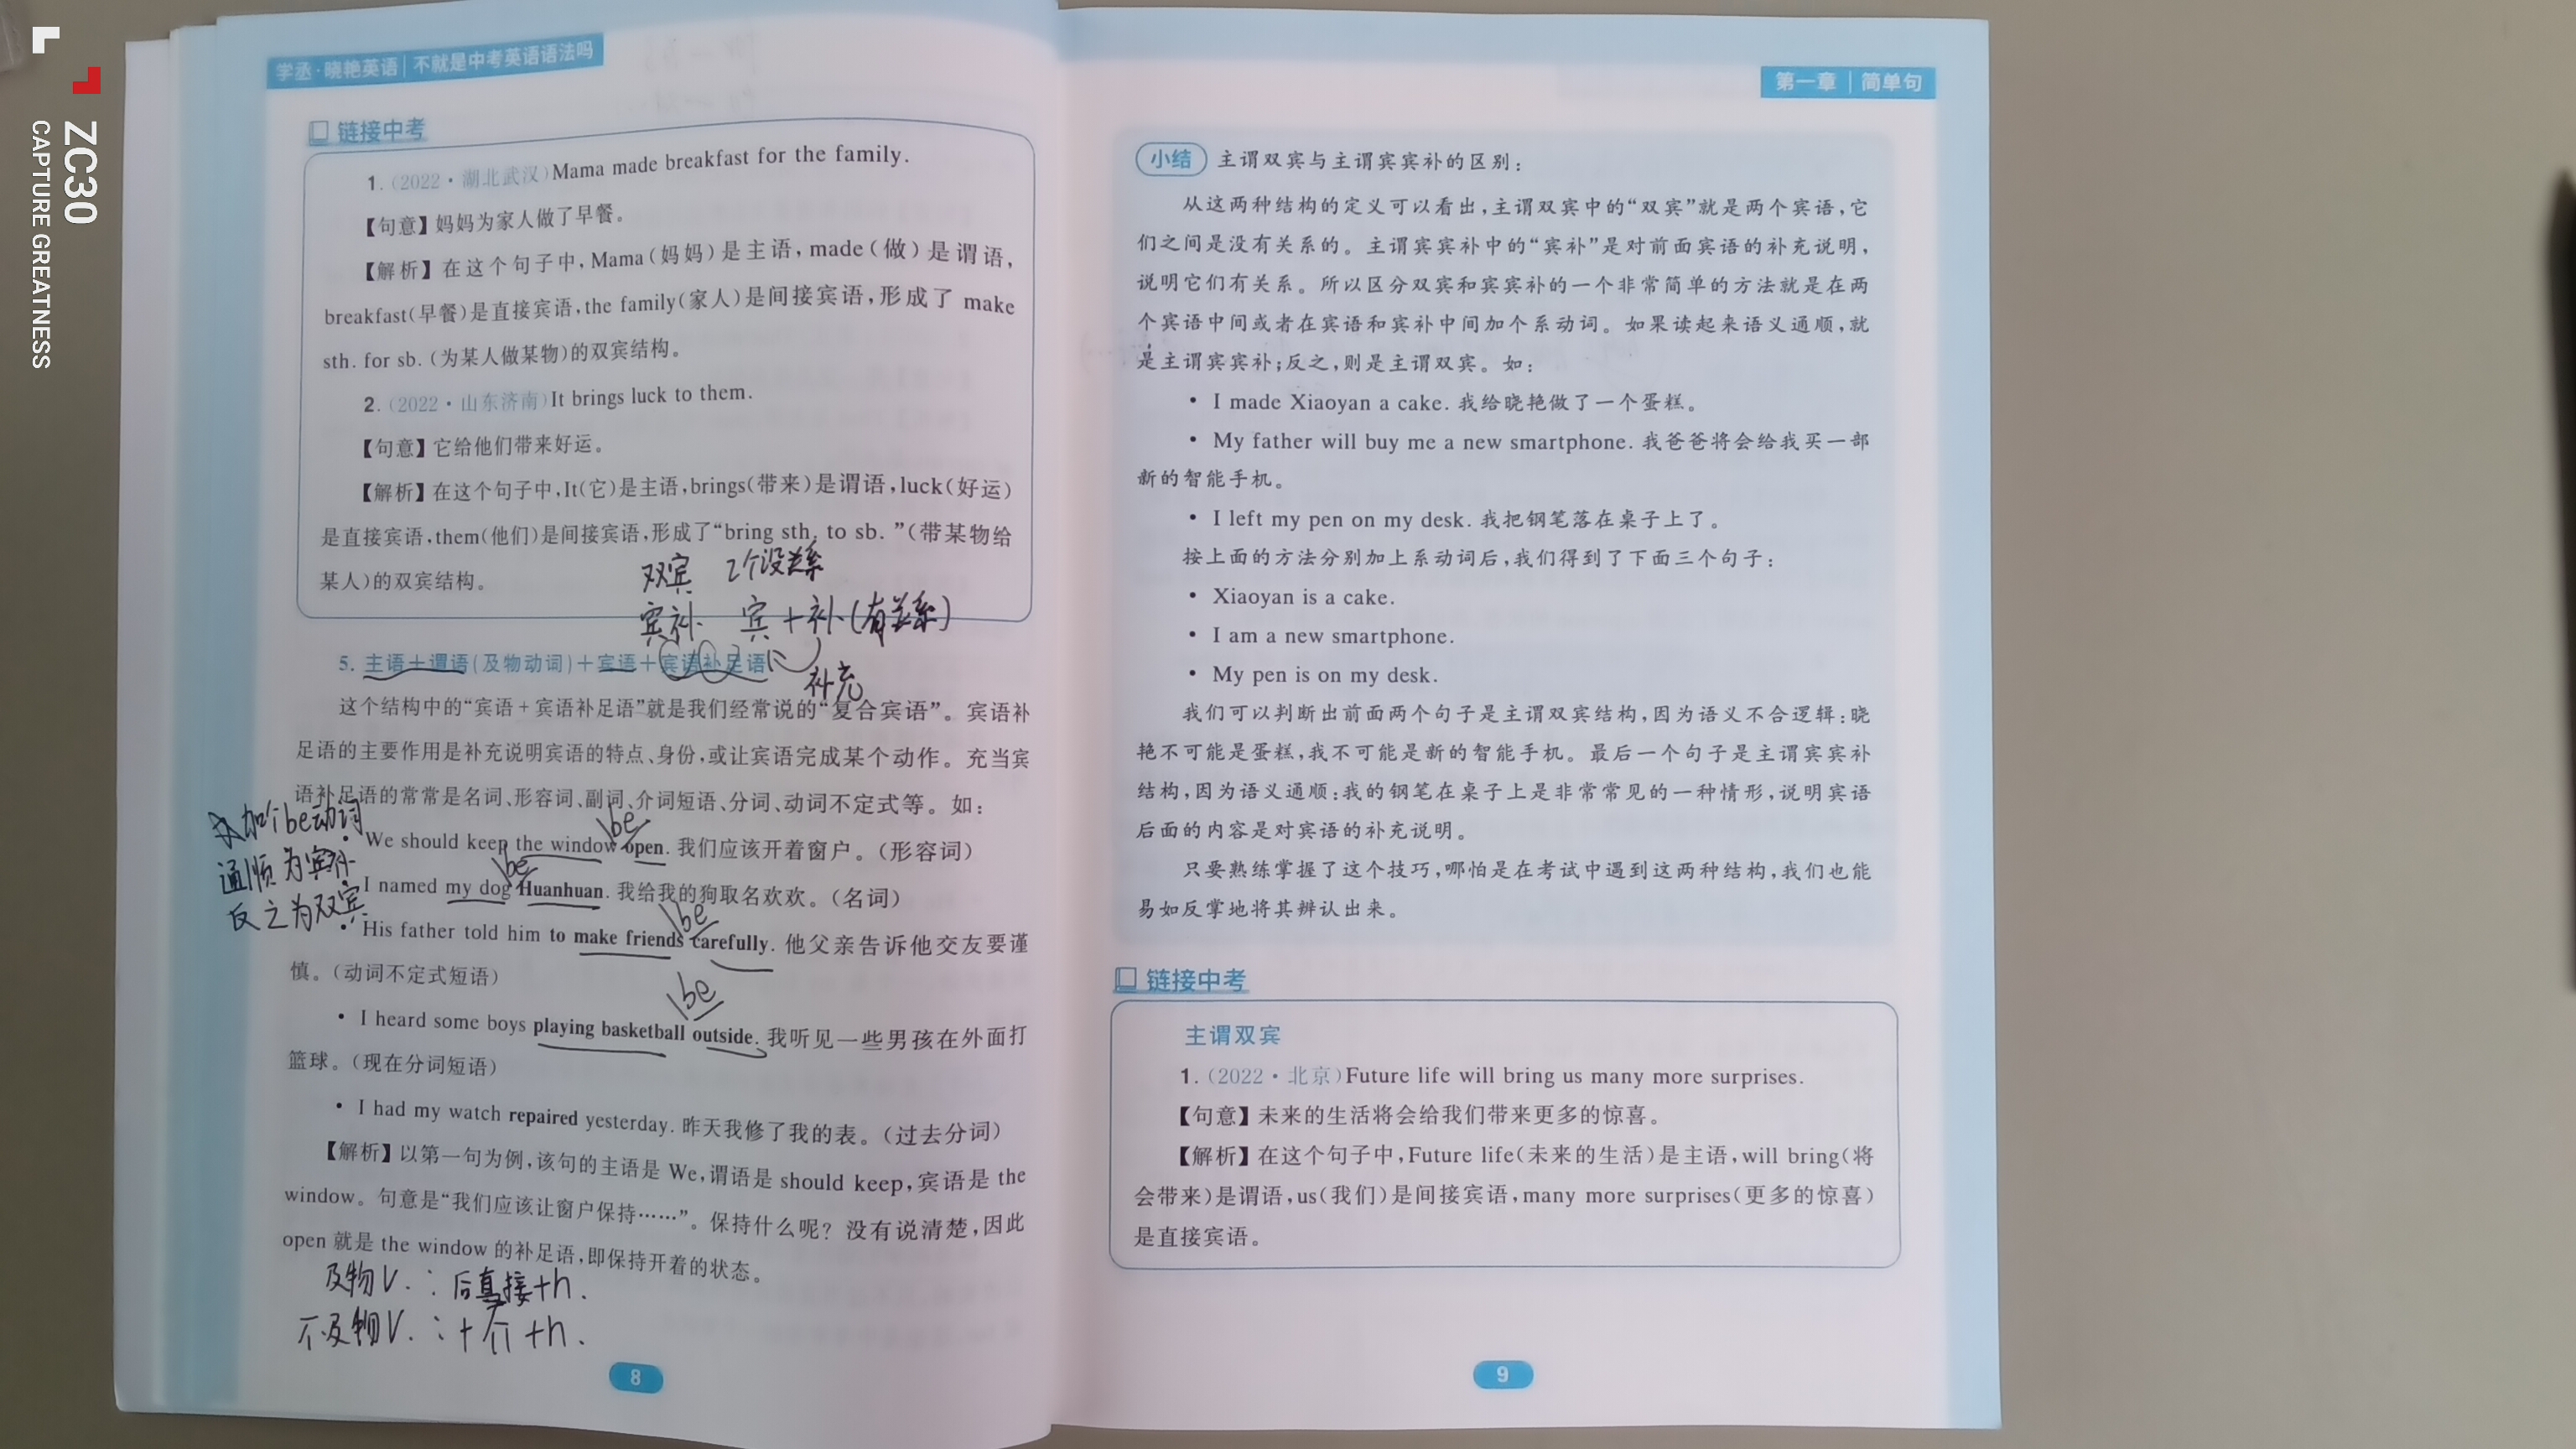 ZC30
CAPTURE GREATNESS
学丞·晓艳英语|不就是中考英语语法吗
链接中考
1.(2022·湖北武汉)Mama made breakfast for the family.
【句意】妈妈为家人做了早餐。
【解析】在这个句子中,Mama(妈妈)是主语,made(做)是谓语,
breakfast(早餐)是直接宾语,the family(家人)是间接宾语,形成了 make
sth. for sb. (为某人做某物)的双宾结构。
2.(2022·山东济南)It brings luck to them.
【句意】它给他们带来好运。
【解析】在这个句子中,It(它)是主语,brings(带来)是谓语,luck(好运)
是直接宾语,them(他们)是间接宾语,形成了“bring sth. to sb. ”(带某物给
某人)的双宾结构。
双宾 2个没关系
宾补 宾+补(有关系)
5. 主语+谓语(及物动词)+宾语+宾语补足语
补充
这个结构中的“宾语+宾语补足语”就是我们经常说的“复合宾语”。宾语补
足语的主要作用是补充说明宾语的特点、身份,或让宾语完成某个动作。充当宾
语补足语的常常是名词、形容词、副词、介词短语、分词、动词不定式等。如:
加个be动词
通顺为宾补
反之为双宾
be
• We should keep the window open. 我们应该开着窗户。(形容词)
be
• I named my dog Huanhuan. 我给我的狗取名欢欢。(名词)
be
• His father told him to make friends carefully. 他父亲告诉他交友要谨
慎。(动词不定式短语)
be
• I heard some boys playing basketball outside. 我听见一些男孩在外面打
篮球。(现在分词短语)
• I had my watch repaired yesterday. 昨天我修了我的表。(过去分词)
【解析】以第一句为例,该句的主语是 We,谓语是 should keep,宾语是 the
window。句意是“我们应该让窗户保持……”。保持什么呢?没有说清楚,因此
open 就是 the window 的补足语,即保持开着的状态。
及物V.:后直接+n.
不及物V.:+介+n.
8
第一章|简单句
小结 主谓双宾与主谓宾宾补的区别:
从这两种结构的定义可以看出,主谓双宾中的“双宾”就是两个宾语,它
们之间是没有关系的。主谓宾宾补中的“宾补”是对前面宾语的补充说明,
说明它们有关系。所以区分双宾和宾宾补的一个非常简单的方法就是在两
个宾语中间或者在宾语和宾补中间加个系动词。如果读起来语义通顺,就
是主谓宾宾补;反之,则是主谓双宾。如:
• I made Xiaoyan a cake. 我给晓艳做了一个蛋糕。
• My father will buy me a new smartphone. 我爸爸将会给我买一部
新的智能手机。
• I left my pen on my desk. 我把钢笔落在桌子上了。
按上面的方法分别加上系动词后,我们得到了下面三个句子:
• Xiaoyan is a cake.
• I am a new smartphone.
• My pen is on my desk.
我们可以判断出前面两个句子是主谓双宾结构,因为语义不合逻辑:晓
艳不可能是蛋糕,我不可能是新的智能手机。最后一个句子是主谓宾宾补
结构,因为语义通顺:我的钢笔在桌子上是非常常见的一种情形,说明宾语
后面的内容是对宾语的补充说明。
只要熟练掌握了这个技巧,哪怕是在考试中遇到这两种结构,我们也能
易如反掌地将其辨认出来。
链接中考
主谓双宾
1.(2022·北京)Future life will bring us many more surprises.
【句意】未来的生活将会给我们带来更多的惊喜。
【解析】在这个句子中,Future life(未来的生活)是主语,will bring(将
会带来)是谓语,us(我们)是间接宾语,many more surprises(更多的惊喜)
是直接宾语。
9